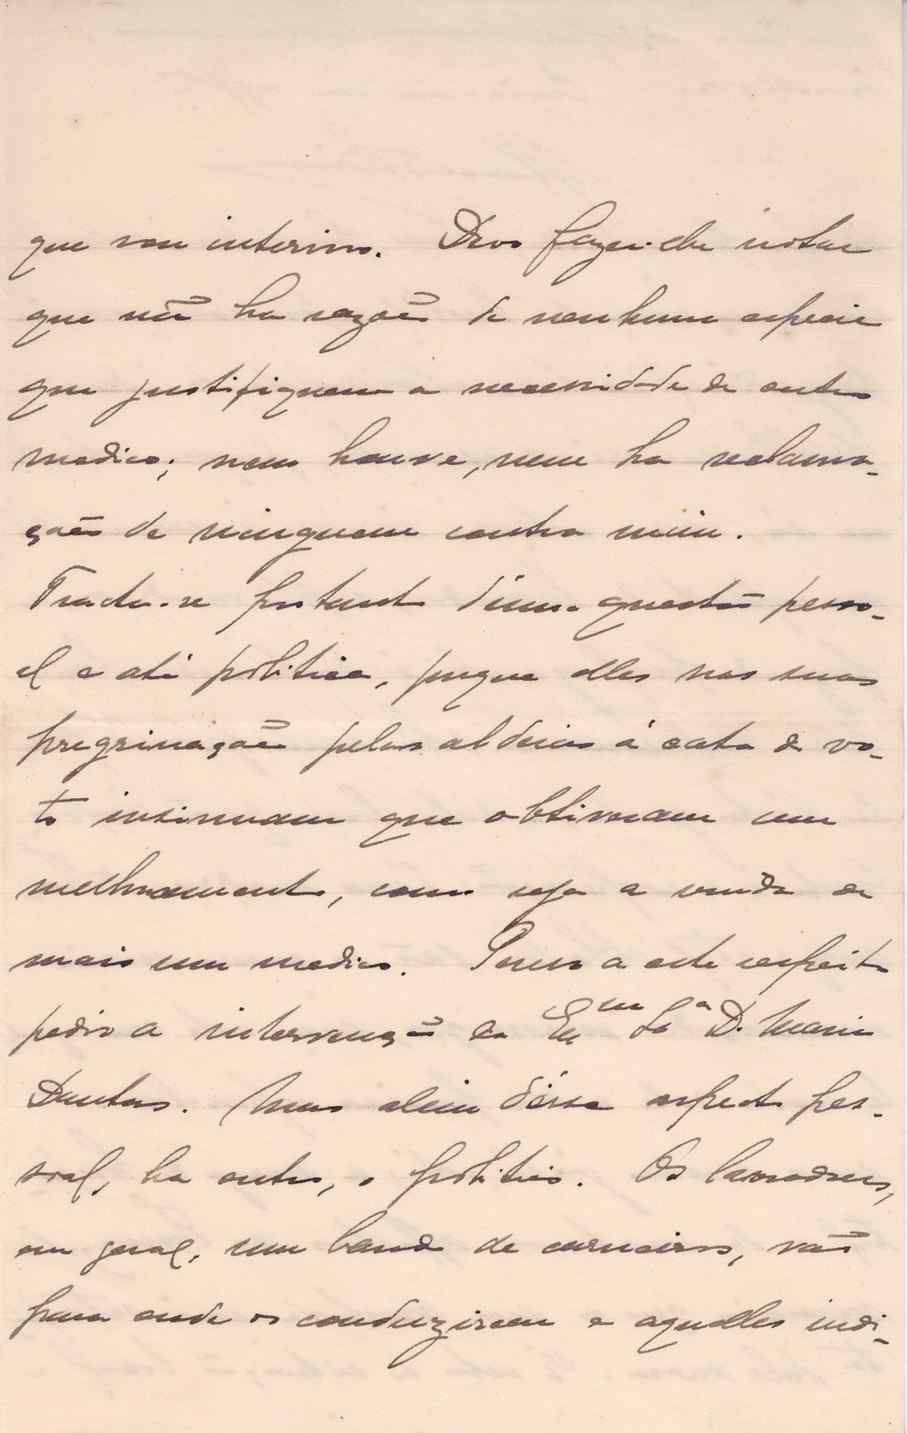 que sou interino. Devo fazer-lhe notar
que não ha razões de nenhuma especie
que justifiquem a necessidade de outro
medico; nem houve, nem ha reclama-
ções de ninguem contra mim.
Tracta-se portanto d'uma questão pesso-
al e até politica, porque elles nas suas
peregrinações pelas aldeias á cata de vo-
to insinuam que obtiveram um
melhoramento, como seja a vinda de
mais um medico. Posso a este respeito
pedir a intervenção da Exma Sra D. Maria
Dantas. Mas alem d'esse aspecto pes-
soal, ha outro, o politico. Os lavradores,
em geral, um bando de carneiros, vão
para onde os conduzirem e aquelles indi-